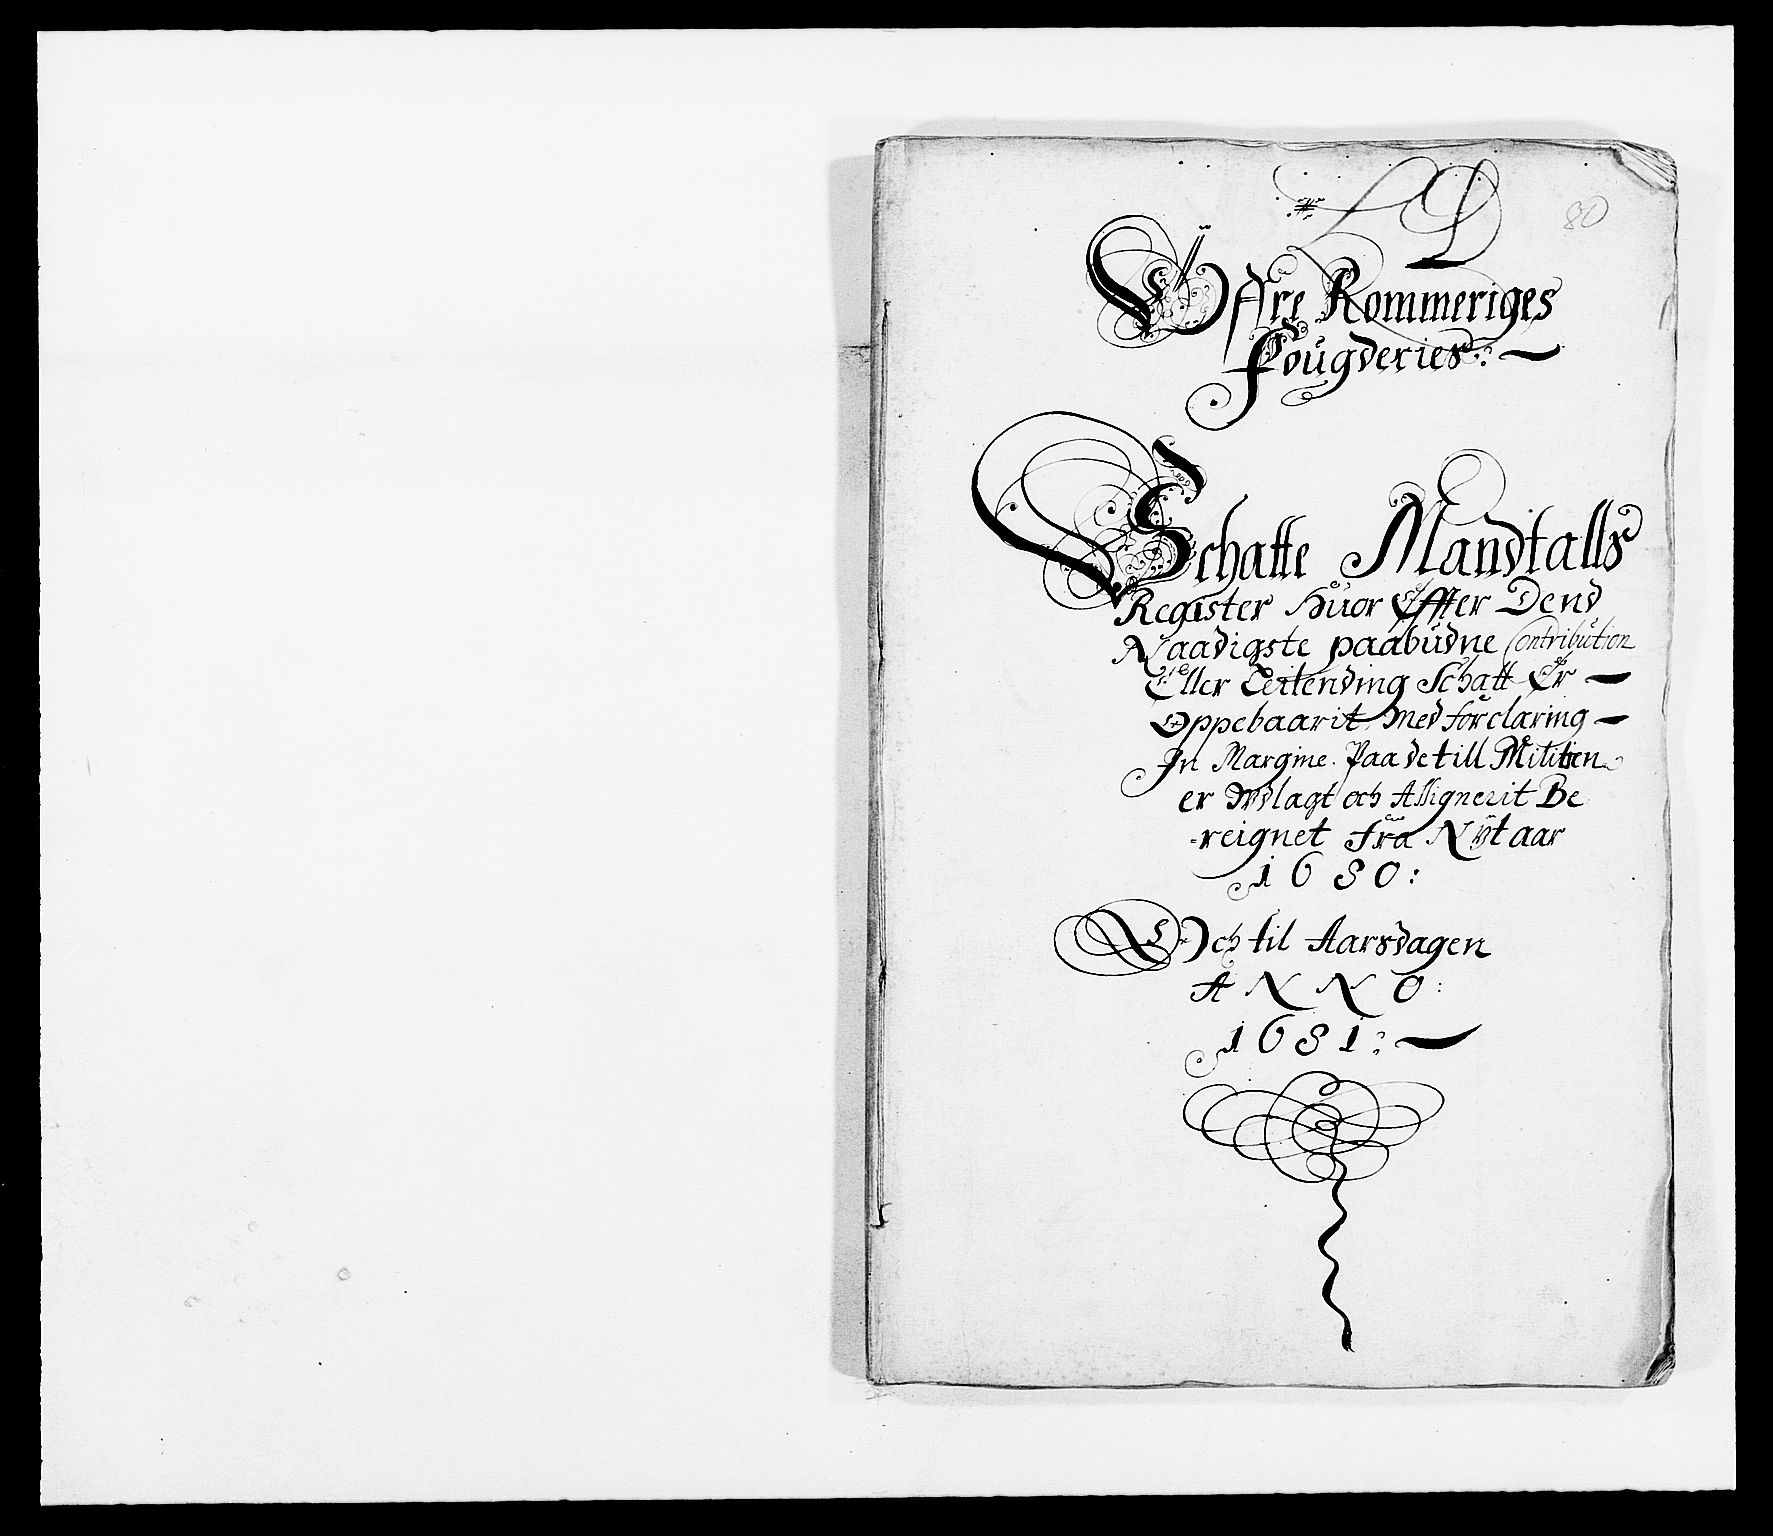 D
80
Öfre Rommeriges
Fougderies:
Schatte Mandtalls
Register Huor Effter Dend
Naadigste paabudne Contribution
Eller Leilending Schatt Er
Oppebaarit Med forclaring
In Margine. Paa de till Militien
er Udlagt och Assignerit Be
-reignet fra Nÿt aar
1680:
Och til Aarsdagen
ANNO:
1681: